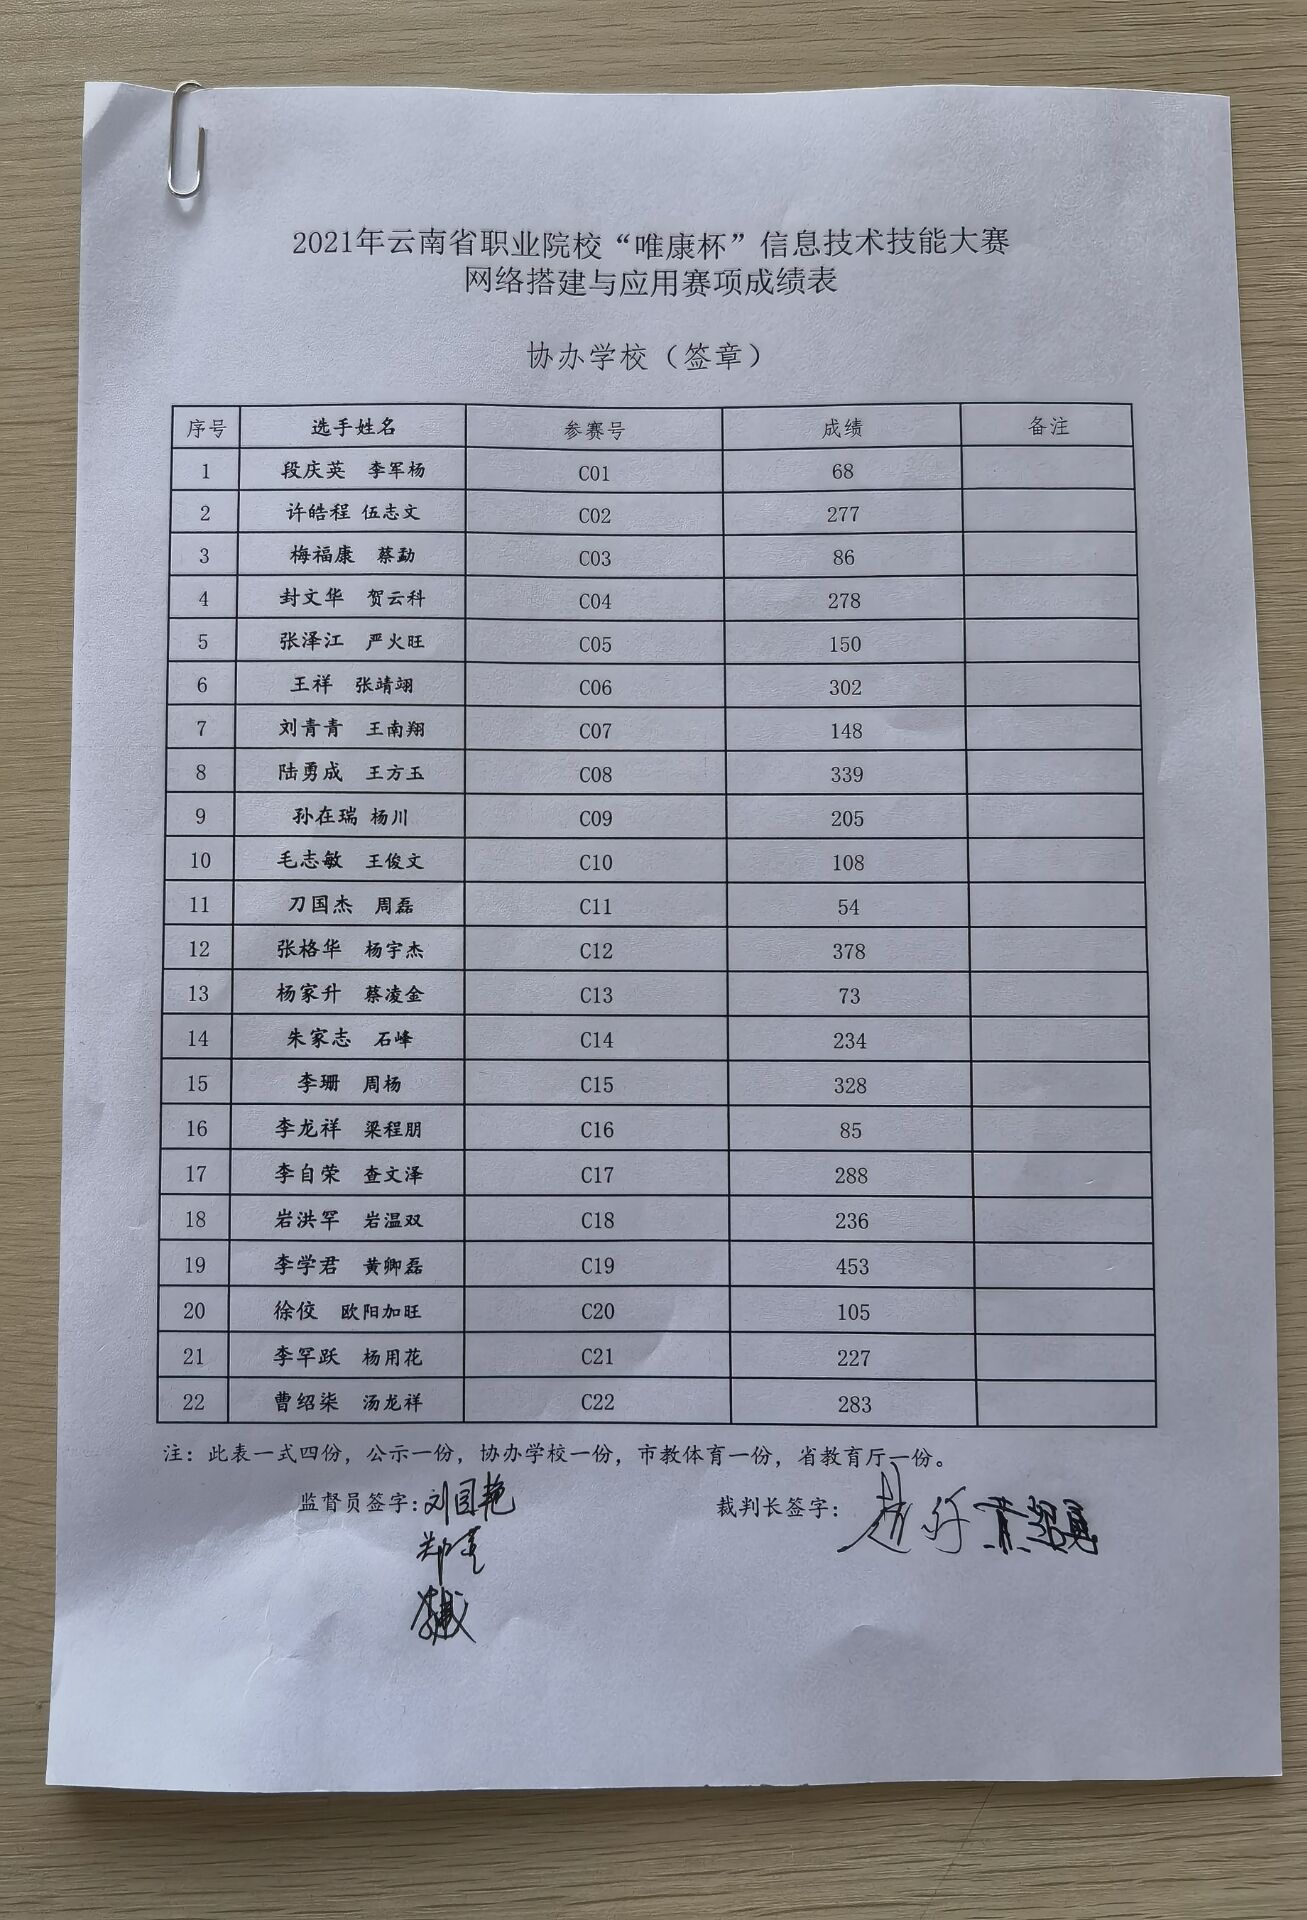 2021年云南省职业院校“唯康杯”信息技术技能大赛
网络搭建与应用赛项成绩表
协办学校（签章）
序号 选手姓名 参赛号 成绩 备注
1 段庆英 李军杨 C01 68
2 许皓程 伍志文 C02 277
3 梅福康 蔡勐 C03 86
4 封文华 贺云科 C04 278
5 张泽江 严火旺 C05 150
6 王祥 张靖翊 C06 302
7 刘青青 王南翔 C07 148
8 陆勇成 王方玉 C08 339
9 孙在瑞 杨川 C09 205
10 毛志敏 王俊文 C10 108
11 刀国杰 周磊 C11 54
12 张格华 杨宇杰 C12 378
13 杨家升 蔡凌金 C13 73
14 朱家志 石峰 C14 234
15 李珊 周杨 C15 328
16 李龙祥 梁程朋 C16 85
17 李自荣 查文泽 C17 288
18 岩洪罕 岩温双 C18 236
19 李学君 黄卿磊 C19 453
20 徐佼 欧阳加旺 C20 105
21 李罕跃 杨用花 C21 227
22 曹绍柒 汤龙祥 C22 283
注：此表一式四份，公示一份，协办学校一份，市教体育一份，省教育厅一份。
监督员签字：刘国艳 裁判长签字：